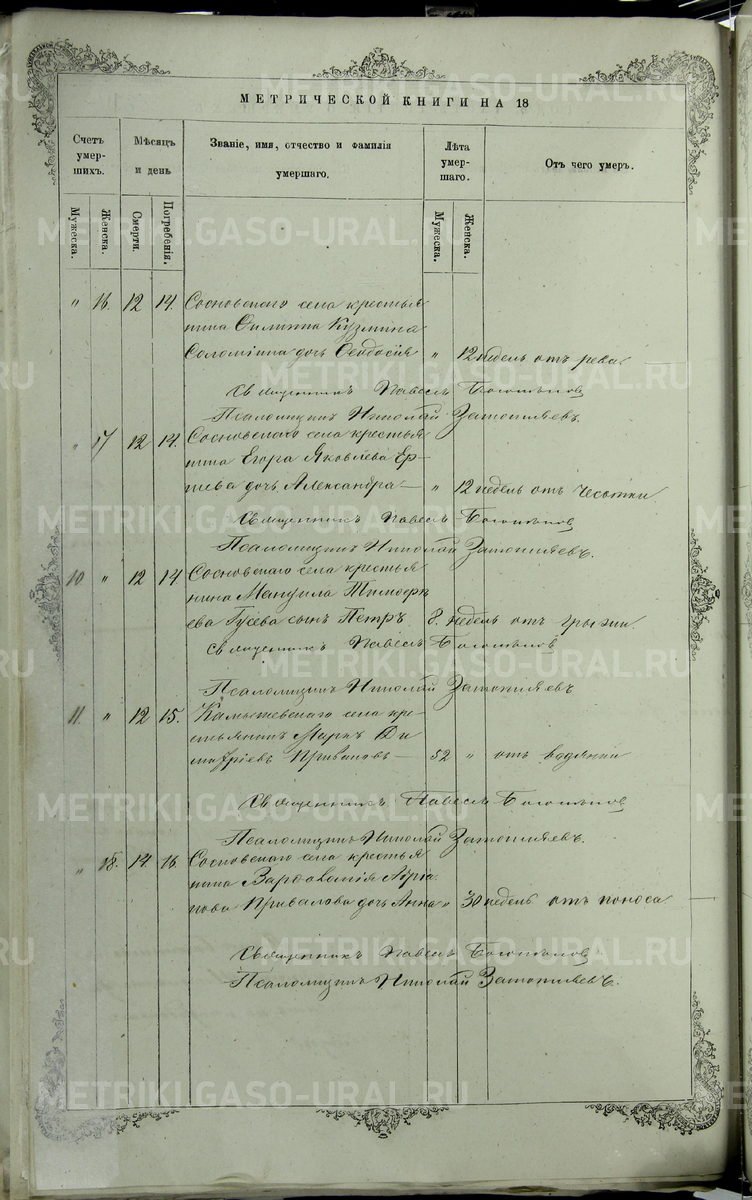 МЕТРИЧЕСКОЙ КНИГИ НА 18
Счетъ умер- шихъ.
Мѣсяцъ и день
Званіе, имя, отчество и фамилія умершаго.
Лѣта умер- шаго.
Отъ чего умеръ.
Мужеска. Женска. Смерти. Погребенія. Мужеска. Женска.
" 16. 12 14. Сосновскаго села крестья
нина Филиппа Кузмина
дочь Ѳеодосія " 12 недель отъ рева.
Священникъ Павелъ
Псаломщикъ Николай
" 17 12 14. Сосновскаго села крестья
нина Егора Яковлева Ер-
шева дочь Александра — " 12 недель отъ чесотки
Священникъ Павелъ
Псаломщикъ Николай
10 " 12 14 Сосновскаго села крестья
нина Мануила Тимофѣ
ева Гусева сынъ Петръ 8. недель отъ грыжи.
Священникъ Павелъ
Псаломщикъ Николай
11. " 12 15. Камышевскаго села кре-
стьянинъ Маркъ Ди
митріевъ Приваловъ — 52 " отъ водянки
Священникъ Павелъ
Псаломщикъ Николай
" 18. 14. 16. Сосновскаго села крестья
нина Варѳоломѣя
Привалова дочь Анна " 30 недель отъ поноса
Священникъ Павелъ
Псаломщикъ Николай
METRIKI.GASO-URAL.RU